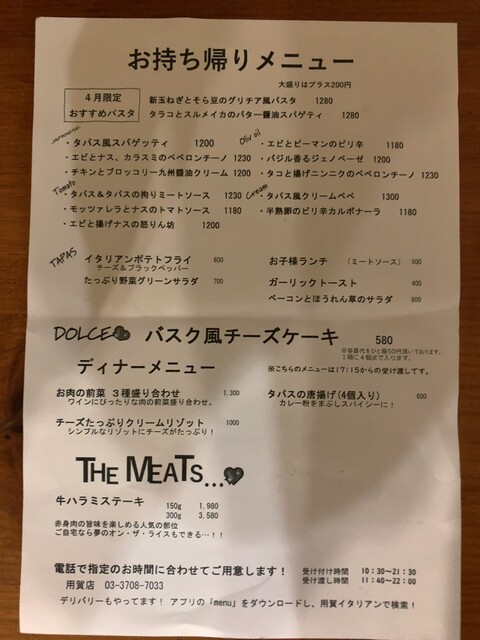 お持ち帰りメニュー
大盛りはプラス200円
4月限定
おすすめパスタ
新玉ねぎとそら豆のグリチア風パスタ 1280
タラコとスルメイカのバター醤油スパゲティ 1280
Japanese
・タパス風スパゲッティ 1200
・エビとナス、カラスミのペペロンチーノ 1230
・チキンとブロッコリー九州醤油クリーム 1200
Tomato
・タパス&タパスの拘りミートソース 1230
・モッツァレラとナスのトマトソース 1180
・エビと揚げナスの怒りん坊 1200
Olive oil
・エビとピーマンのピリ辛 1180
・バジル香るジェノベーゼ 1200
・タコと揚げニンニクのペペロンチーノ 1230
Cream
・タパス風クリームペペ 1300
・半熟卵のピリ辛カルボナーラ 1180
TAPAS
イタリアンポテトフライ 600
チーズ&ブラックペッパー
たっぷり野菜グリーンサラダ 700
お子様ランチ (ミートソース) 500
ガーリックトースト 400
ベーコンとほうれん草のサラダ 800
DOLCE バスク風チーズケーキ 580
※容器代をひと箱50円頂いております。
1箱に4個まで入ります。
ディナーメニュー
※こちらのメニューは17:15からの受け渡しです。
お肉の前菜 3種盛り合わせ 1,300
ワインにぴったりな肉の前菜盛り合わせ。
チーズたっぷりクリームリゾット 1000
シンプルなリゾットにチーズがたっぷり!
タパスの唐揚げ(4個入り) 600
カレー粉をまぶしスパイシーに!
THE MEATS...
牛ハラミステーキ 150g 1,980
300g 3,580
赤身肉の旨味を楽しめる人気の部位
ご自宅なら夢のオン・ザ・ライスもできる…!!
電話で指定のお時間に合わせてご用意します!
用賀店 03-3708-7033
受け付け時間 10:30~21:30
受け渡し時間 11:40~22:00
デリバリーもやってます! アプリの「menu」をダウンロードし、用賀イタリアンで検索!